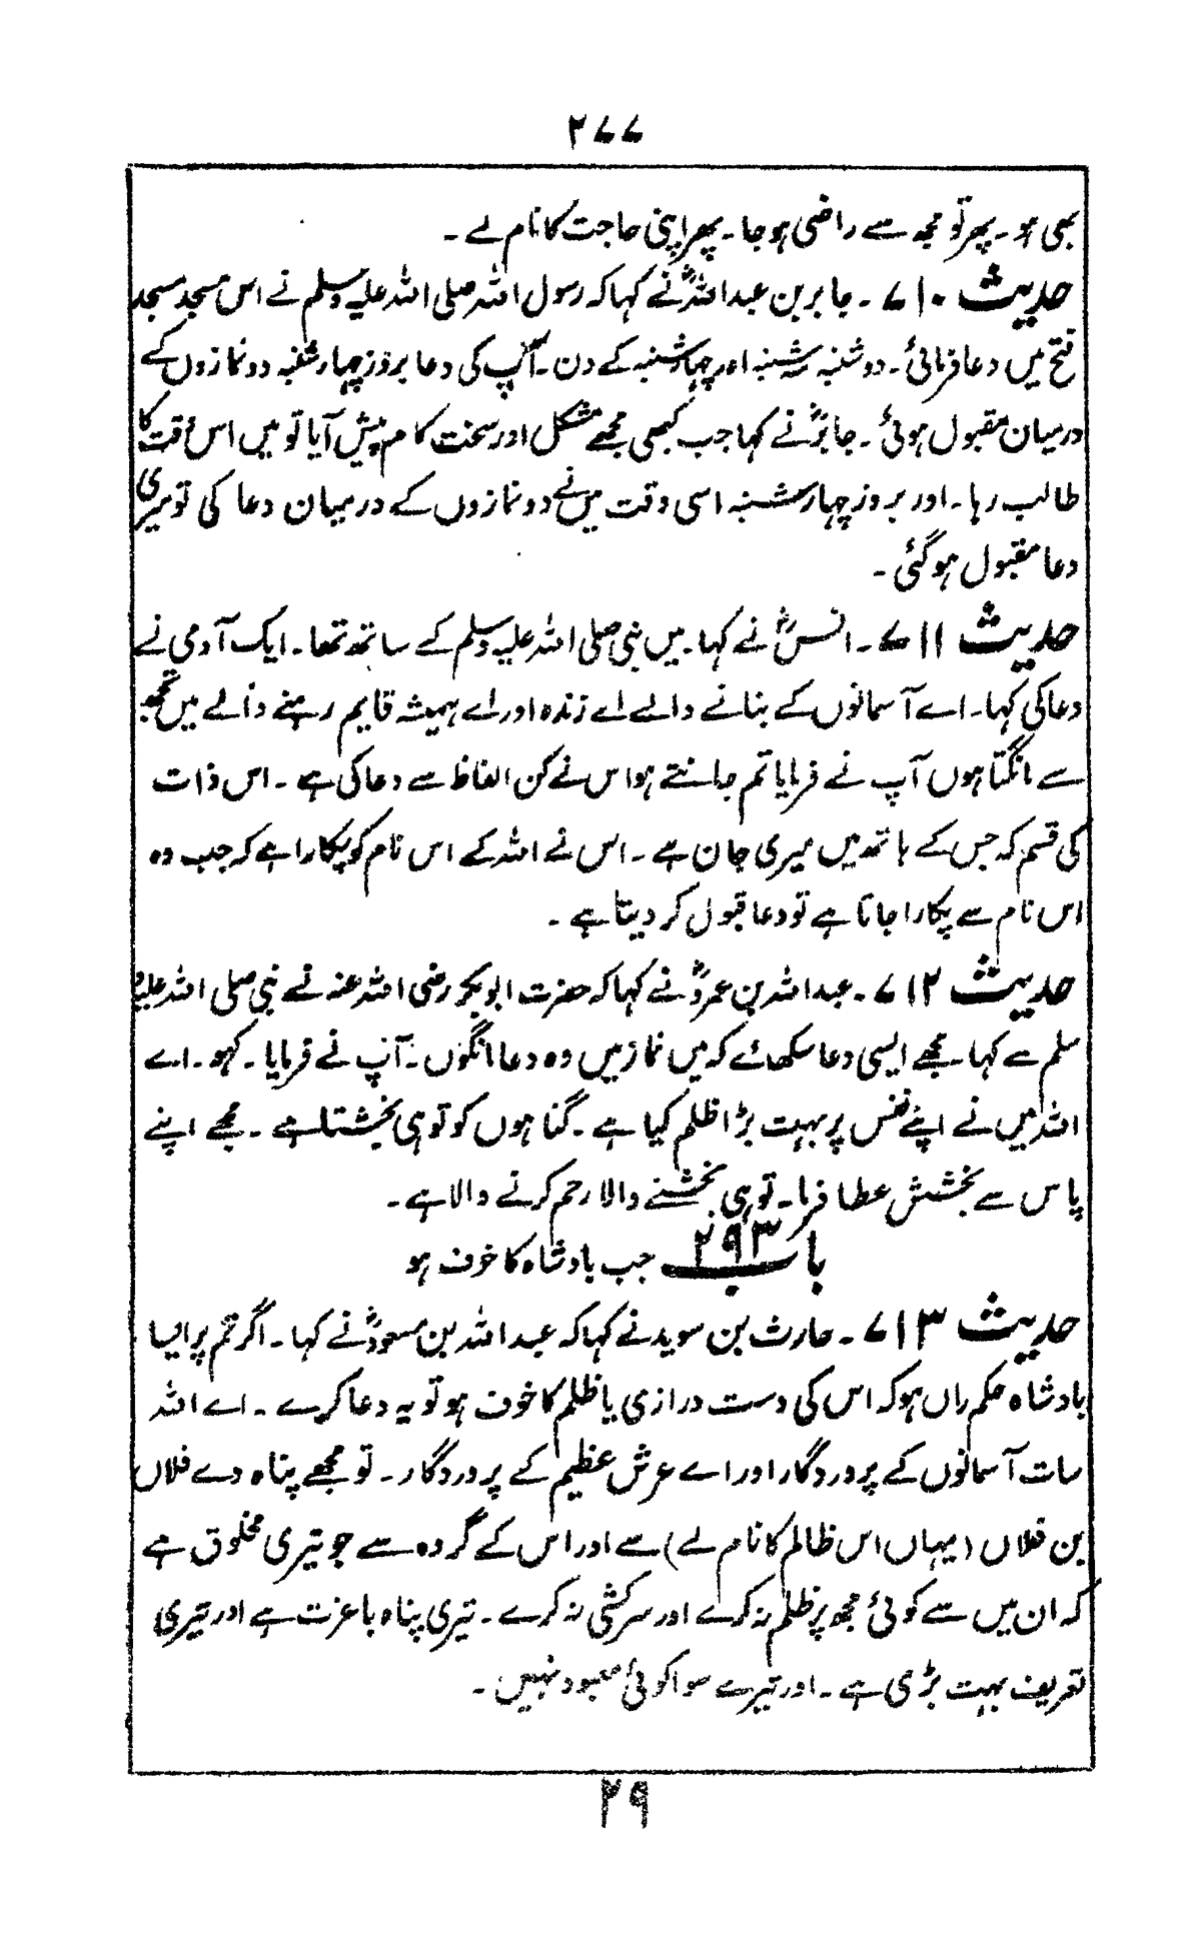 ۲۷۷
بھی ہو۔ پھر تو مجھ سے راضی ہو جا۔ پھر اپنی حاجت کا نام لے ۔
حدیث ۷۱۰ ۔ جابر بن عبداللہؓ نے کہا کہ رسول اللہ صلی اللہ علیہ وسلم نے اس مسجد مسجد
فتح میں دعا فرمائی۔ دوشنبہ سہ شنبہ اور چہار شنبہ کے دن ۔ آپ کی دعا بروز چہار شنبہ دو نمازوں کے
درمیان مقبول ہوئی ۔ جابرؓ نے کہا جب کبھی مجھے مشکل اور سخت کام پیش آیا تو میں اس وقت کا
طالب رہا ۔ اور بروز چہار شنبہ اسی وقت میں نے دو نمازوں کے درمیان دعا کی تو میری
دعا مقبول ہو گئی ۔
حدیث ۷۱۱ ۔ انسؓ نے کہا۔ میں نبی صلی اللہ علیہ وسلم کے ساتھ تھا۔ ایک آدمی نے
دعا کی کہا۔ اے آسمانوں کے بنانے والے اے زندہ اور اے ہمیشہ قایم رہنے والے میں تجھ
سے مانگتا ہوں آپ نے فرمایا تم جانتے ہو اس نے کن الفاظ سے دعا کی ہے ۔ اس ذات
کی قسم کہ جس کے ہاتھ میں میری جان ہے ۔ اس نے اللہ کے اس نام کو پکارا ہے کہ جب وہ
اس نام سے پکارا جاتا ہے تو دعا قبول کر دیتا ہے ۔
حدیث ۷۱۲ ۔ عبداللہ بن عمروؓ نے کہا کہ حضرت ابوبکر رضی اللہ عنہ نے نبی صلی اللہ علیہ و
سلم سے کہا۔ مجھے ایسی دعا سکھائے کہ میں نماز میں وہ دعا مانگوں ۔ آپ نے فرمایا ۔ کہو ۔ اے
اللہ میں نے اپنے نفس پر بہت بڑا ظلم کیا ہے ۔ گناہوں کو تو ہی بخشتا ہے ۔ مجھے اپنے
پاس سے بخشش عطا فرما۔ تو ہی بخشنے والا رحم کرنے والا ہے ۔
باب ۲۹۳ جب بادشاہ کا خوف ہو
حدیث ۷۱۳ ۔ حارث بن سوید نے کہا کہ عبداللہ بن مسعودؓ نے کہا ۔ اگر تم پر ایسا
بادشاہ حکم راں ہو کہ اس کی دست درازی یا ظلم کا خوف ہو تو یہ دعا کرے ۔ اے اللہ
سات آسمانوں کے پروردگار اور اے عرش عظیم کے پروردگار ۔ تو مجھے پناہ دے فلاں
بن فلاں (یہاں اس ظالم کا نام لے) سے اور اس کے گروہ سے جو تیری مخلوق ہے
کہ ان میں سے کوئی مجھ پر ظلم نہ کرے اور سرکشی نہ کرے ۔ تیری پناہ باعزت ہے اور تیری
تعریف بہت بڑی ہے ۔ اور تیرے سوا کوئی معبود نہیں ۔
۲۹